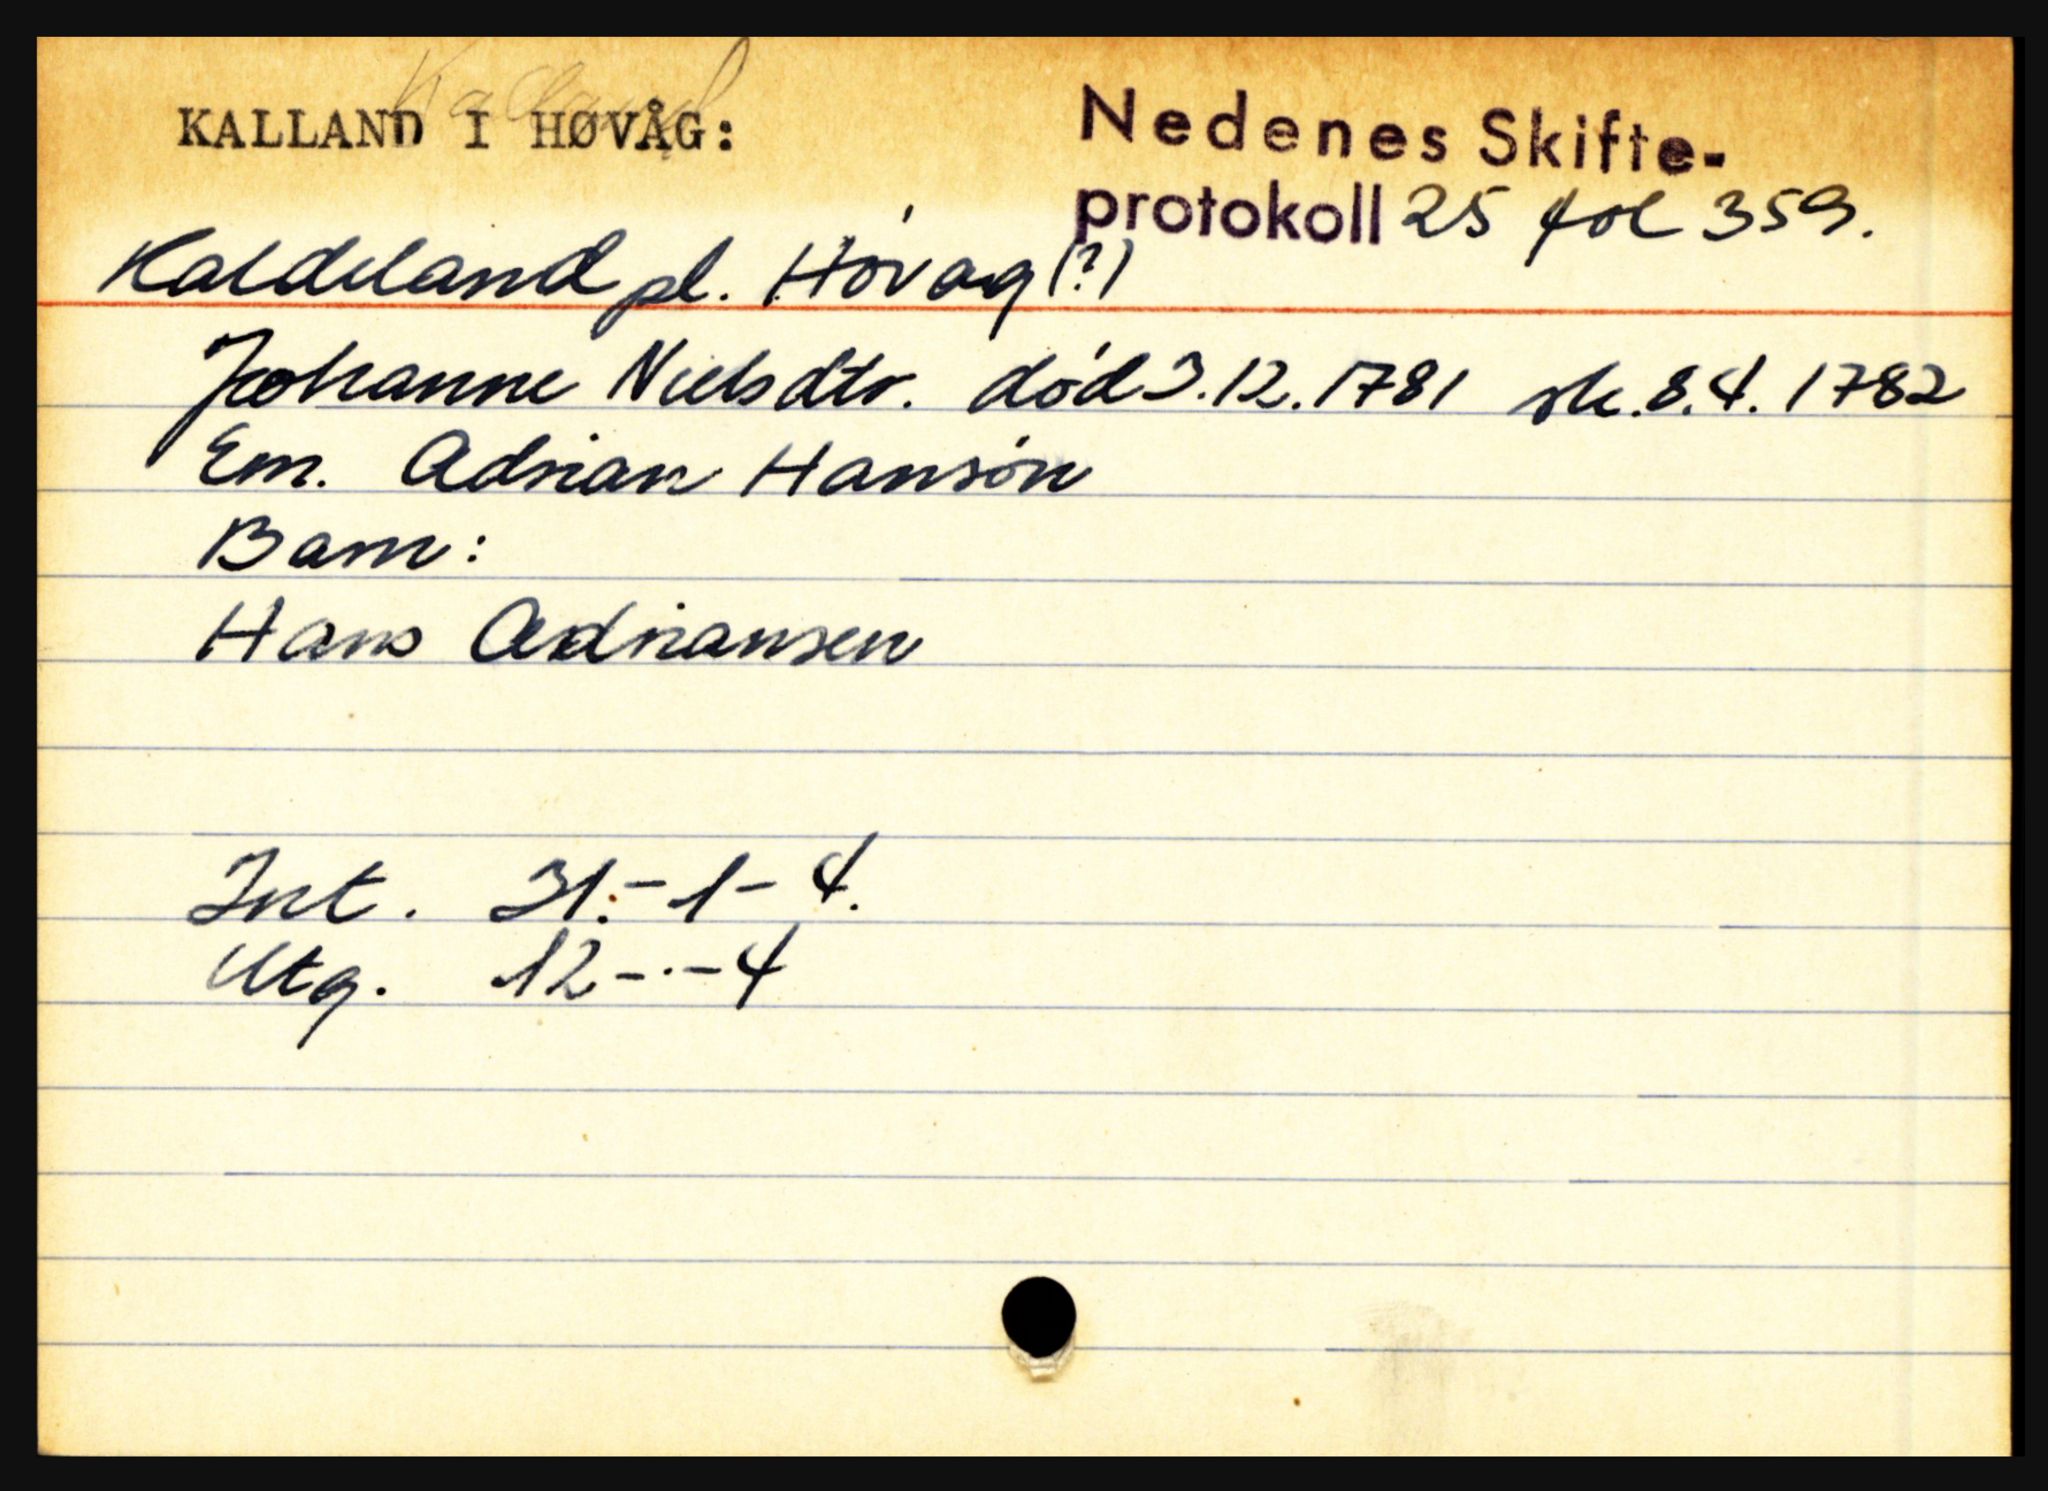 Kalland
KALLAND I HØVÅG:
Nedenes Skifte-
protokoll 25 fol 359.
Kaldeland pl. Høvag (?)
Johanne Nielsdtr. død 3.12.1781 sk. 8.4.1782
Em. Adrian Hansøn
Barn:
Hans Adriansen
Int. 31.-1-4.
Utg. 12-·-4